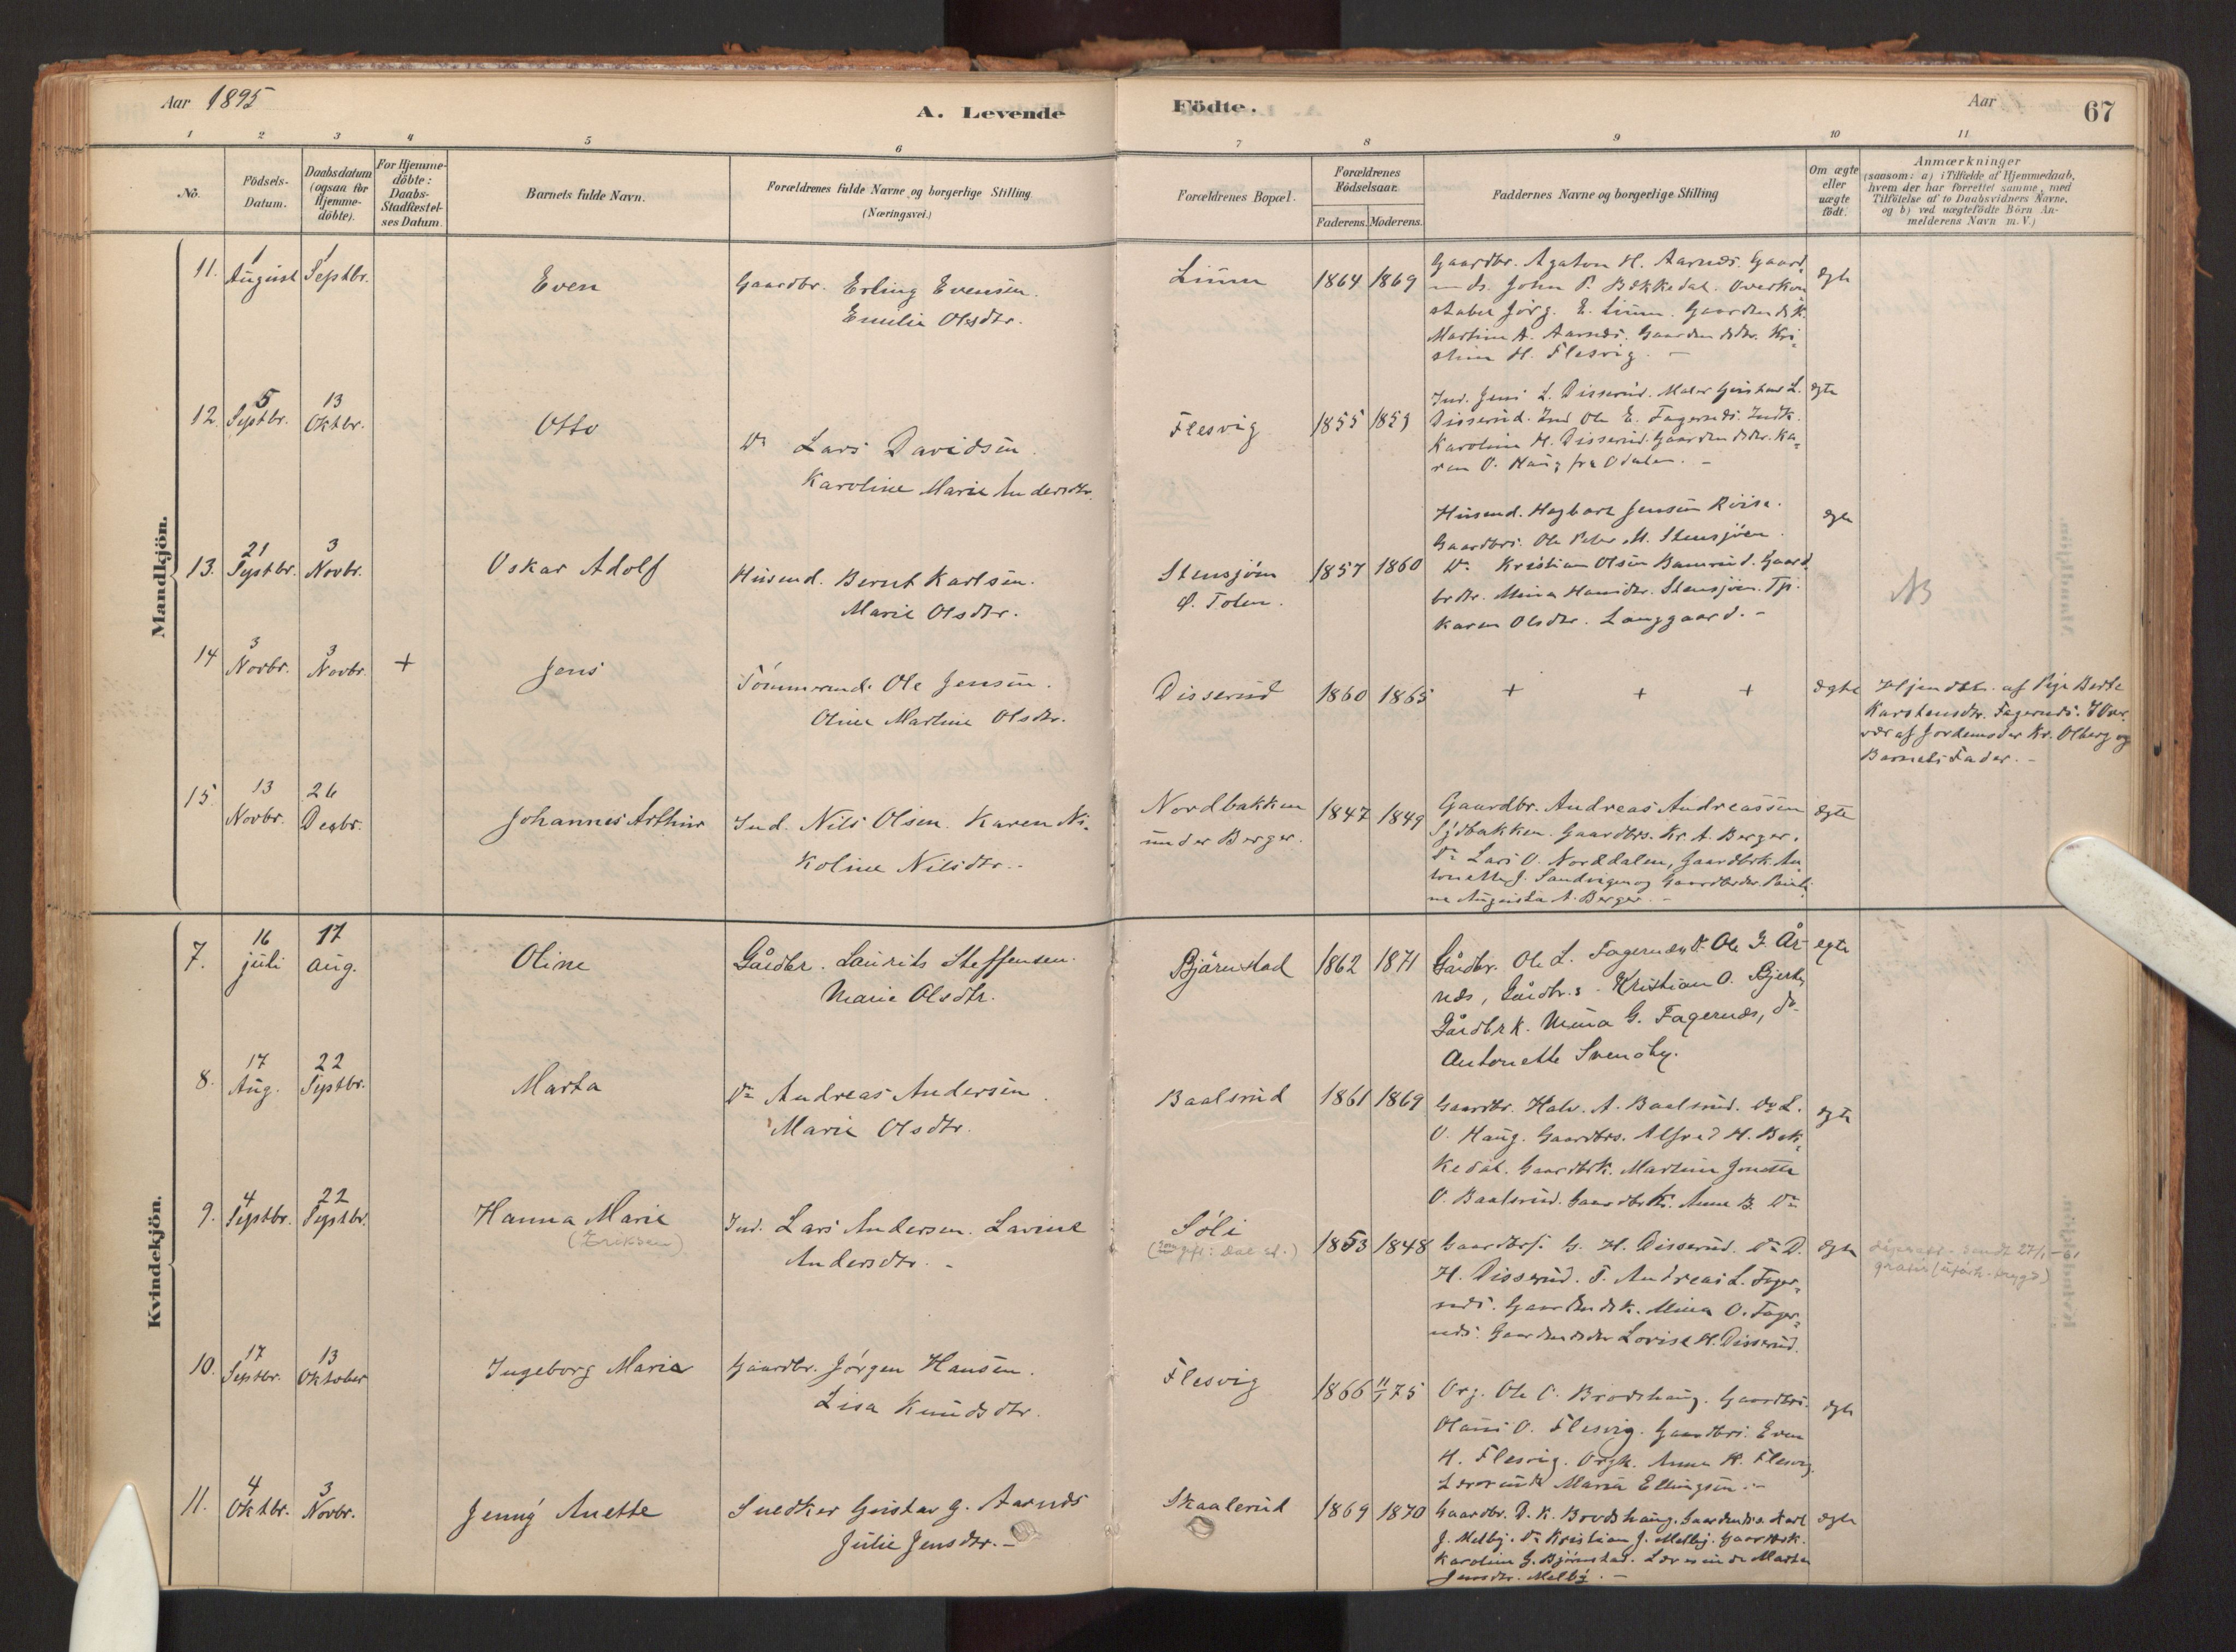 Aar 1895
A. Levende
Födte.
Aar
67
1 2 3 4 5 6 7 8 9 10 11
No.
Födsels-
Datum.
Daabsdatum
(ogsaa for
Hjemme-
döbte).
For Hjemme-
döbte:
Daabs-
Stadfæstel-
ses Datum.
Barnets fulde Navn.
Forældrenes fulde Navne og borgerlige Stilling
(Næringsvei.)
Forældrenes Bopæl.
Forældrenes
Födselsaar.
Faderens. Moderens.
Faddernes Navne og borgerlige Stilling
Om ægte
eller
uægte
födt.
Anmærkninger
(saasom: a) i Tilfælde af Hjemmedaab,
hvem der har forrettet samme, med
Tilföielse af to Daabsvidners Navne.
og b) ved uægtefödte Börn An-
melderens Navn m. V.)
Mandkjön.
11.
1
August
1
Septbr.
Even
Gaardbr. Erling Evensen.
Emilie Olsdtr.
Linnn
1864 1869
Gaardbr. Agaton H. Aarnæs. Gaard
mds. John P. Bækkedal. Overkon
stabel Jörg. E. Gaardmdsk.
Martine A. Aarnæs. Gaardmdsdtr. Kri-
stine H. Flesvig. -
ægte
12.
5
Septbr.
13
Oktbr.
Otto
Do Lars Davidsen.
Karoline Marie Andersdtr.
Flesvig
1855 1859
Ind. Jens L. Disserud. Maler Gustav L.
Disserud. Ind Ole E. Fagernæs. Indk.
Karoline H. Disserud. Gaardmdsdtr. Ka-
ren O. Haug fra Odalen. -
ægte
13.
21
Septbr.
3
Novbr.
Oskar Adolf
Husmd. Bernt Karlsen.
Marie Olsdtr.
Stensjöen
Ö. Toten.
1857 1860
Husmd. Hagbart Jensen Röise.
Gaardbrs. Ole Peter M. Stensjöen.
Do Kristian Olsen Gaard
brdtr. Mina Hansdtr. Stensjöen. Tjp.
Karen Olsdtr. Langgaard. -
ægte
NB
14
3
Novbr.
3
Novbr.
+
Jens
Tömmermd. Ole Jensen.
Oline Martine Olsdtr.
Disserud
1860 1865
+ + +
ægte
Hjemdbt. af Pige Berte
Karstensdtr. Fagernæs. I Over-
vær af Jordemoder Kr. Olberg og
Barnets Fader. -
15.
13
Novbr.
26
Decbr.
Johannes Arthur
Ind. Nils Olsen. Karen Ni-
koline Nilsdtr. -
Nordbakken
under Berger.
1847 1849
Gaardbr. Andreas Andreassen
Sydbakken. Gaardbrs. Kr. A. Berger.
Do Lars O. Norddalen, Gaardbrk. An
tonette J. Sandvigen og Gaardbrdtr. Pauli
ne Augusta A. Berger. -
ægte
Kvindekjön.
7.
16
juli
17
aug.
Oline
Gårdbr. Laurits Steffensen.
Marie Olsdtr.
Bjørnstad
1862 1871
Gårdbr. Ole L. Fagernæs, Do Ole J. År-
næs, Gårdbr.s. Kristian O. Bjerke,
Gårdbrk. Mina G. Fagernæs, do
Antonette Svensby.
egte
8.
17
Aug.
22
Septbr.
Marta
Do Andreas Andersen.
Marie Olsdtr.
Baalsrud
1861 1869
Gaardbr. Halv. A. Baalsrud. Do L.
O. Haug. Gaardbrs. Alfred H. Bæk-
kedal. Gaardbrk. Martine Jonette
O. Baalsrud. Gaardbrk. Anne B. Do
ægte
9.
4
Septbr.
22
Septbr.
Hanna Marie
(Eriksen)
Ind. Lars Andersen. Lavine
Andersdtr. -
Söli
1853 1848
Gaardbrf. G. H. Disserud. Do D.
H. Disserud. T. Andreas L. Fager-
næs. Gaardmdsk. Mina O. Fager-
næs. Gaardmdsdtr Lovise H. Disserud.
ægte
sendt 27/1-61
gratis
10.
17
Septbr.
13
Oktober
Ingeborg Marie
Gaardbr. Jörgen Hansen.
Lisa Knudsdtr.
Flesvig
1866 11/1 75
Org. Ole C. Brodshaug. Gaardbrs.
Olaus O. Flesvig. Gaardbrs. Even
H. Flesvig. Orgk. Anna K. Flesvig.
Lærerinde Maria Ellingsen. -
ægte
11.
4
Oktbr.
3
Novbr.
Jenny Anette
Snedker Gustav G. Aarnæs
Julie Jensdtr. -
Skaalerud
1869 1870
Gaardbr. D. K. Brodshaug. Gaardmds. Karl
J. Melby. Do Kristian J. Melby. Gaardbrk.
Karoline G. Bjørnstad. Lærerinde Martha
Jensdtr. Melby. -
ægte